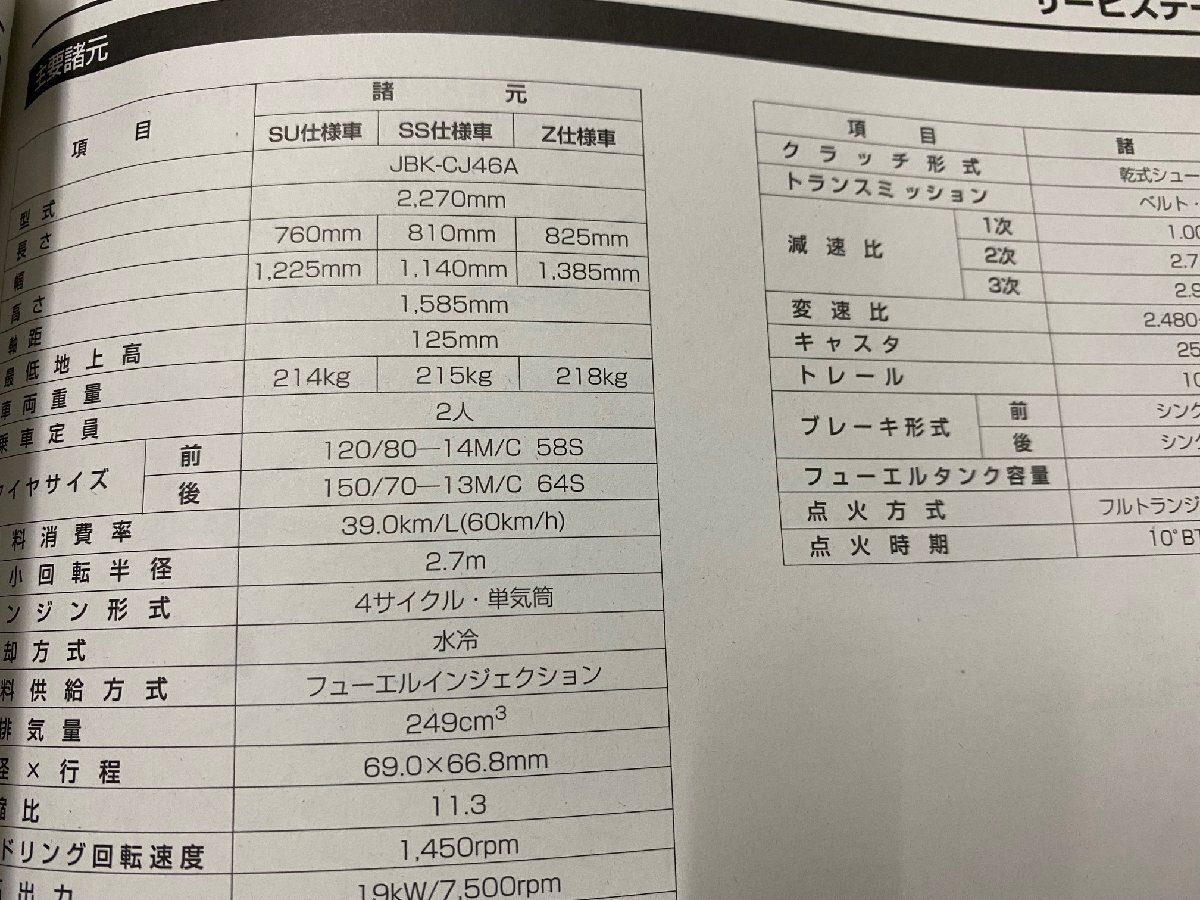 サービスデー
主要諸元
項 目 諸 元
SU仕様車 SS仕様車 Z仕様車
型式 JBK-CJ46A
長さ 2,270mm
幅 760mm 810mm 825mm
高さ 1,225mm 1,140mm 1,385mm
軸距 1,585mm
最低地上高 125mm
車両重量 214kg 215kg 218kg
乗車定員 2人
イヤサイズ 前 120/80—14M/C 58S
後 150/70—13M/C 64S
料消費率 39.0km/L(60km/h)
小回転半径 2.7m
ンジン形式 4サイクル・単気筒
却方式 水冷
料供給方式 フューエルインジェクション
排気量 249cm³
径×行程 69.0×66.8mm
縮比 11.3
ドリング回転速度 1,450rpm
出力 19kW/7,500rpm
項 目 諸
クラッチ形式 乾式シュー
トランスミッション ベルト・
減速比 1次 1.00
2次 2.7
3次 2.9
変速比 2.480
キャスタ 25
トレール 10
ブレーキ形式 前 シング
後 シング
フューエルタンク容量
点火方式 フルトランジ
点火時期 10°BT